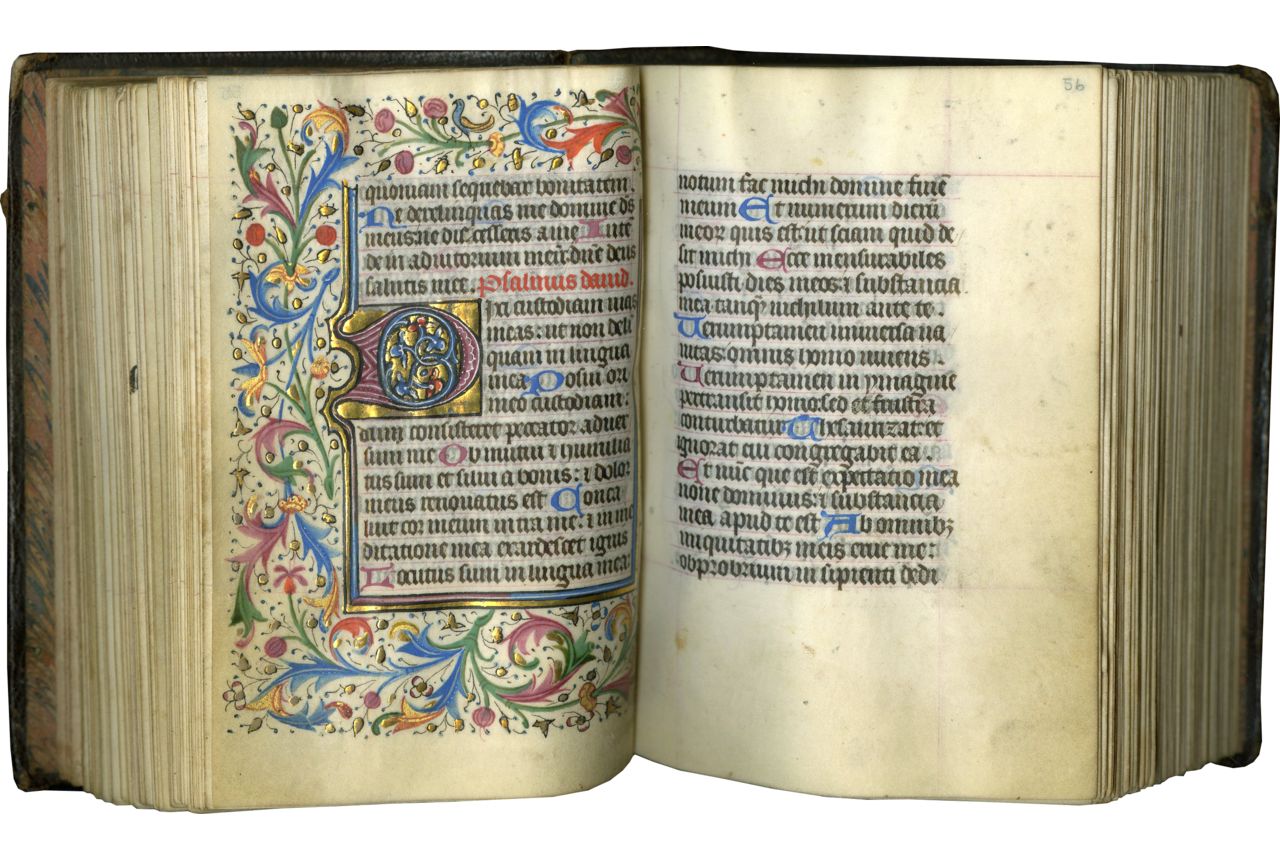 quoniam sequebar bonitatem
Ne derelinquas me domine ds̄
meus: ne discesseris a me Inte
de in adiutorium meū dn̄e deus
salutis mee. Psalmus dauid.
Dixi custodiam uias
meas: ut non deli
quam in lingua
mea Posui ori
meo custodiam:
cum consisteret peccator aduer
sum me Obmutui ⁊ humilia
tus sum et silui a bonis: ⁊ dolor
meus renouatus est Conca
luit cor meum intra me: ⁊ in me
ditatione mea exardescet ignis
Locutus sum in lingua mea
56
notum fac michi domine finē
meum Et numerum dierū
meor quis est: ut sciam quid de
sit michi Ecce mensurabiles
posuisti dies meos: ⁊ substancia
mea tanq̄ nichilum ante te.
Uerumptamen uniuersa ua
nitas: omnis homo uiuens.
Uerumptamen in ymagine
pertransit homo: sed et frustra
conturbatur Thesaurizat: et
ignorat cui congregabit ea.
Et nūc que est expectatio mea
nonne dominus: ⁊ substancia
mea apud te est Ab omnibꝫ
iniquitatibꝫ meis erue me:
obprobrium insipienti dedi